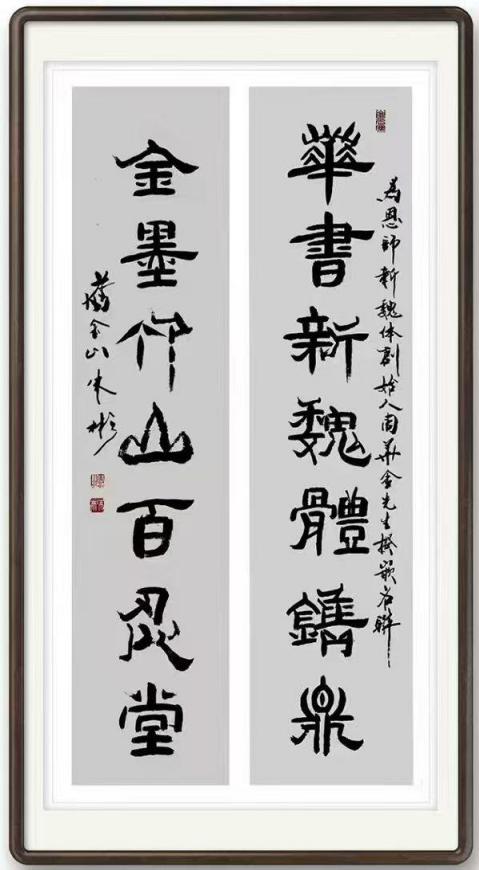 華書新魏體鐫鼎
為恩師新魏体創始人華金先生撰嵌名聯
金墨山百忍堂
舊金山朱彬